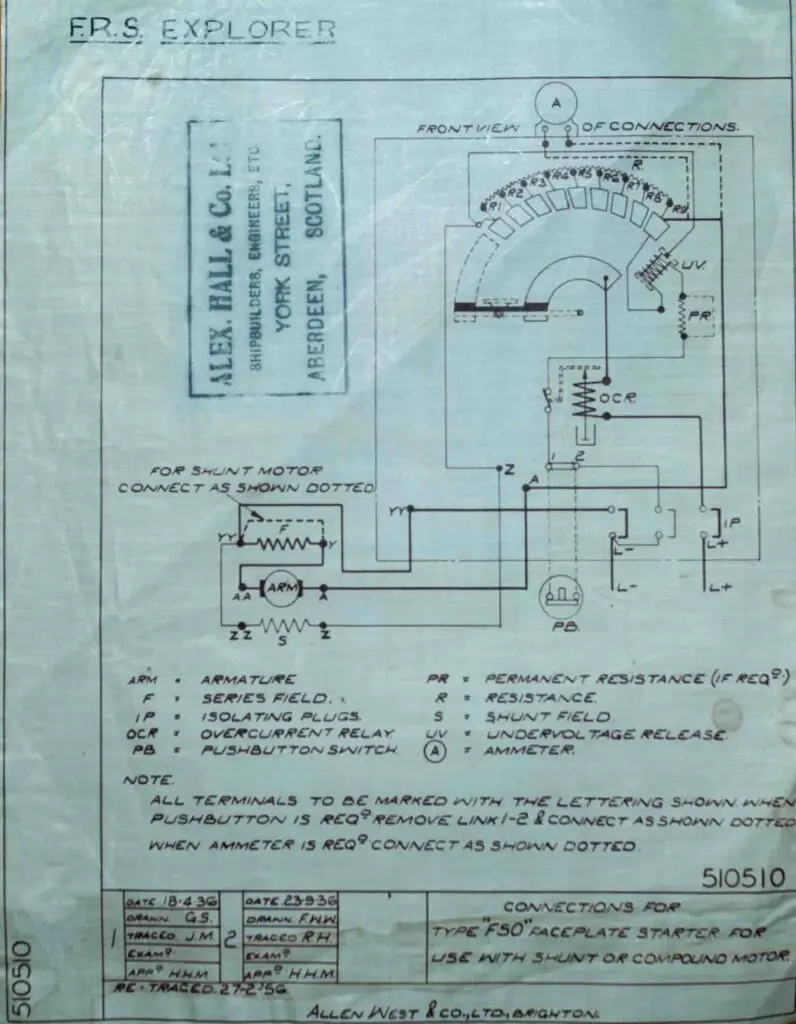 F.R.S. EXPLORER
ALEX. HALL & Co. L
SHIPBUILDERS, ENGINEERS, ETC
YORK STREET,
ABERDEEN, SCOTLAND.
A
FRONT VIEW OF CONNECTIONS.
R
R1 R2 R3 R4 R5 R6 R7 R8 R9
UV
PR
OCR
1 2
Z
A
FOR SHUNT MOTOR
CONNECT AS SHOWN DOTTED
YY
IP
L- L+
YY F Y
AA ARM A
L- L+
ZZ S Z
PB.
ARM = ARMATURE
F = SERIES FIELD.
IP = ISOLATING PLUGS.
OCR = OVERCURRENT RELAY
PB = PUSHBUTTON SWITCH
PR = PERMANENT RESISTANCE (IF REQD)
R = RESISTANCE.
S = SHUNT FIELD
UV = UNDERVOLTAGE RELEASE.
A = AMMETER.
NOTE.
ALL TERMINALS TO BE MARKED WITH THE LETTERING SHOWN. WHEN
PUSHBUTTON IS REQD REMOVE LINK 1-2 & CONNECT AS SHOWN DOTTED
WHEN AMMETER IS REQD CONNECT AS SHOWN DOTTED.
510510
1
DATE 18-4-36
DRAWN. G.S.
TRACED. J.M.
EXAMD
APPD H.H.M
2
DATE 23-9-36
DRAWN. F.W.W.
TRACED R.H.
EXAMD
APPD H.H.M.
CONNECTIONS FOR
TYPE "FSO" FACEPLATE STARTER FOR
USE WITH SHUNT OR COMPOUND MOTOR.
RE-TRACED. 27-2-56
510510
ALLEN WEST & CO., LTD., BRIGHTON.